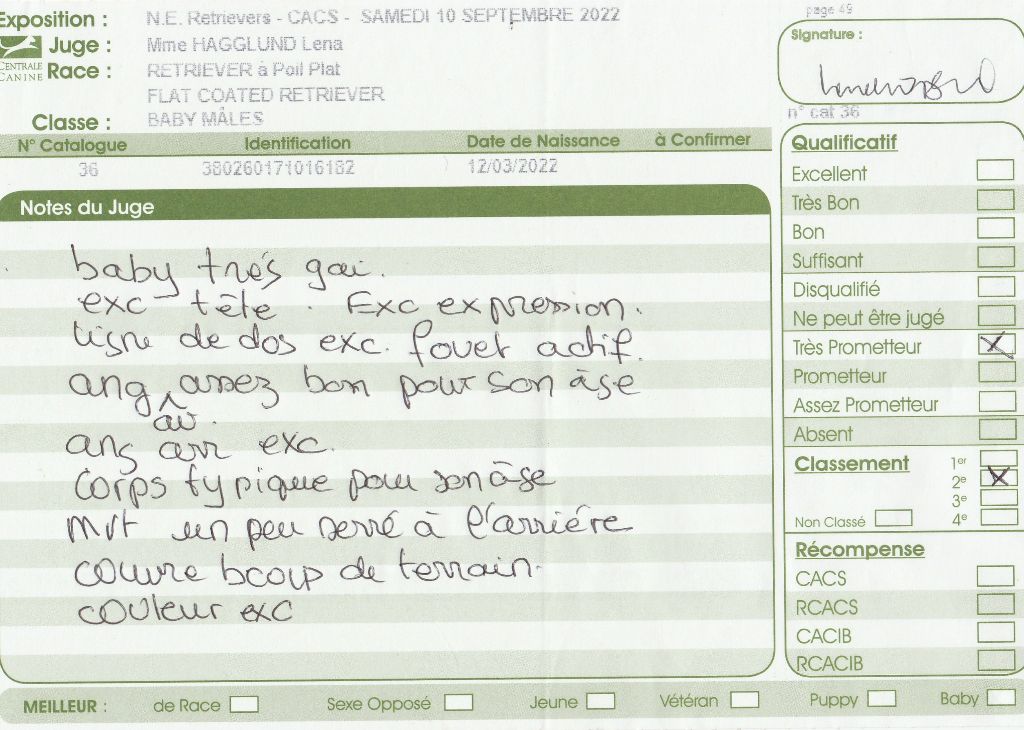 Exposition : N.E. Retrievers - CACS - SAMEDI 10 SEPTEMBRE 2022
page 49
Juge : Mme HAGGLUND Lena
Signature :
CENTRALE CANINE
Race : RETRIEVER à Poil Plat
FLAT COATED RETRIEVER
Classe : BABY MÂLES
n° cat 36
N° Catalogue Identification Date de Naissance à Confirmer
36 380260171016182 12/03/2022
Notes du Juge
baby très gai.
exc tête. Exc expression.
ligne de dos exc. fouet actif.
ang assez bon pour son âge
av.
ang arr exc.
Corps typique pour son âge
Mvt un peu serré à l'arriére
couvre bcoup de terrain.
couleur exc
Qualificatif
Excellent
Très Bon
Bon
Suffisant
Disqualifié
Ne peut être jugé
Très Prometteur X
Prometteur
Assez Prometteur
Absent
Classement 1er
2e X
3e
Non Classé 4e
Récompense
CACS
RCACS
CACIB
RCACIB
MEILLEUR : de Race Sexe Opposé Jeune Vétéran Puppy Baby